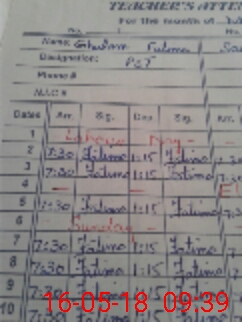 TEACHER'S ATTE
For the month of
No.
Name: Ghulam Fatima
Designation: PST
Phone #
N.I.C #
Dates Arr. Sig. Dep. Sig. Arr.
1 Labour Day -
2 7:30 Fatima 1:15 Fatima
3 7:30 Fatima 1:15 Fatima
4 -
5 7:30 Fatima 1:15 Fatima
6 Sunday -
7 7:30 Fatima 1:15 Fatima
8 7:30 Fatima 1:15 Fatima
9 7:30 Fatima 1:15 Fatima
10 7:30 Fatima 1:15 Fatima
16-05-18 09:39